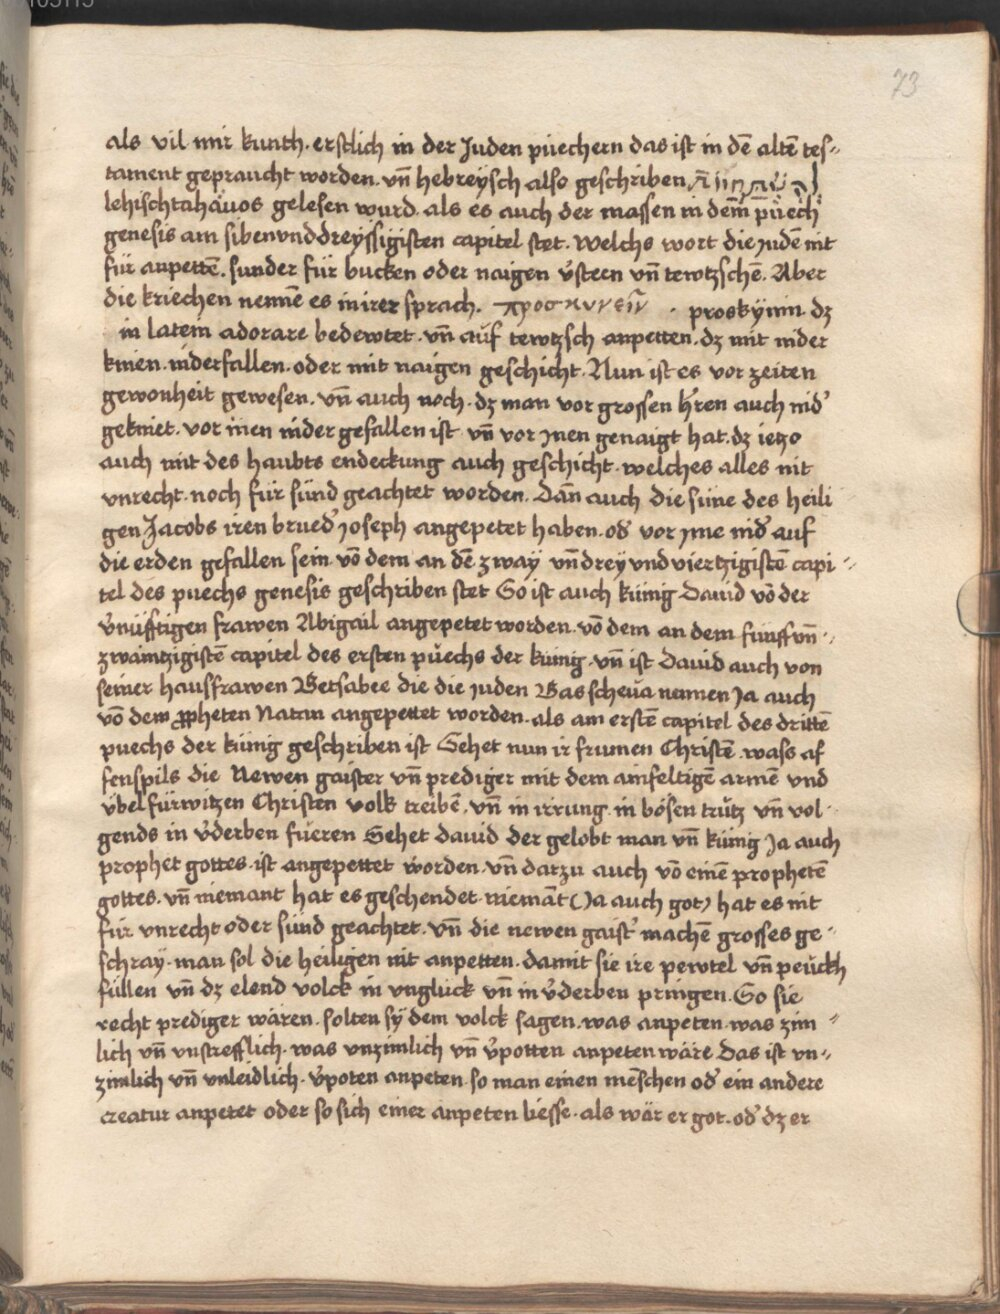 73
als vil mir kunth. erstlich in der Juden püechern das ist in dē altē tes-
tament gepraucht worden. vn̄ hebreÿsch also geschriben
lehischtahauos gelesen wurd. als es auch der massen in dem̄ püech
genesis am sibenvnddreÿssigisten capitel stet. Welchs wort die judē nit
für anpettē. sunder für bucken oder naigen v̉steen vn̄ tewtzschē. Aber
die kriechen nennē es in irer sprach. προσκυνεῖν . proskÿnin. dz
in latein adorare bedewtet. vn̄ auf tewtzsch anpetten. dz mit nider
knien. niderfallen. oder mit naigen geschicht. Nun ist es vor zeiten
gewonheit gewesen. vn̄ auch noch. dz man vor grossen h̉ren auch nid̉
gekniet. vor inen nider gefallen ist vn̄ vor jnen genaigt hat. dz ietzo
auch mit des haubts endeckung auch geschicht. welches alles nit
vnrecht. noch für sünd geachtet worden. Dān auch die süne des heili
gen Jacobs iren brued̉ joseph angepetet haben. od̉ vor jme nid̉ auf
die erden gefallen sein. vō dem an dē zwaÿ vn̄ dreÿ vnd viertzigistē capi-
tel des puechs genesis geschriben stet So ist auch künig Dauid vō der
v̉nüfftigen frawen Abigail angepetet worden. vō dem an dem funff vn̄-
zwaintzigistē capitel des ersten püechs der künig. vn̄ ist Dauid auch von
seiner hausfrawen Betsabee die die juden Bas scheua nennen Ja auch
vō dem ꝓpheten Natan angepettet worden. als am erstē capitel des drittē
puechs der künig geschriben ist Sehet nun ir frumen Christē. wass af
fenspils die Newen gaister vn̄ prediger mit dem ainfeltigē armē vnd
übelfürwitzen Christen volk treibē. vn̄ in irrung. in bösen trütz vn̄ vol-
gends in v̉derben füeren Sehet dauid der gelobt man vn̄ künig Ja auch
prophet gottes. ist angepettet worden. vn̄ darzu auch vō einē prophetē
gottes. vn̄ niemant hat es geschendet. niemāt (Ja auch got) hat es nit
für vnrecht oder sünd geachtet. vn̄ die newen gaist̉ machē grosses ge-
schraÿ. man sol die heiligen nit anpetten. damit sie ire pewtel vn̄ peückh
füllen vn̄ dz elend volck in vnglück vn̄ in v̉derben pringen. So sie
recht prediger wären. solten sÿ dem volck sagen. was anpeten. was zim-
lich vn̄ vnstrefflich. was vnzimlich vn̄ v̉potten anpeten wäre Das ist vn-
zimlich vn̄ vnleidlich. v̉poten anpeten. so man einen mēschen od̉ ein andere
creatur anpetet oder so sich einer anpeten liesse. als wär er got. od̉ dz er